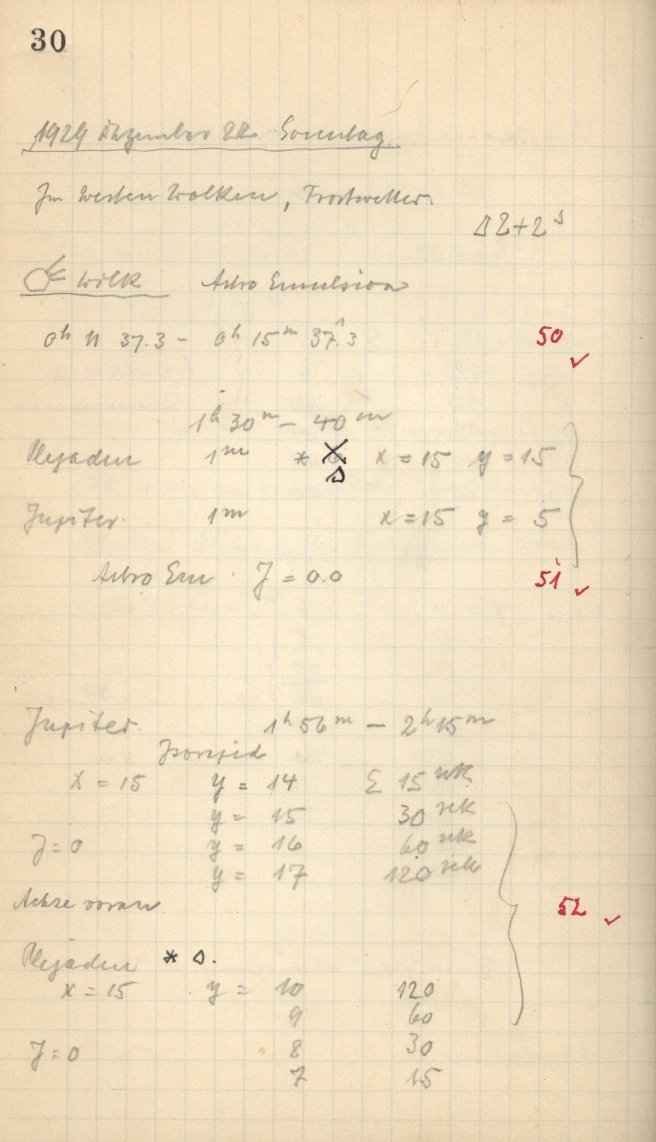 30
1929 Dezember 22. Sonntag.
Im Westen Wolken, Frostwetter.
Δ Z + 2 s
☄ Wilk Astro Emulsion
0h 11 37.3 - 0h 15m 37.3 50 ✓
1h 30m - 40m
Plejaden 1m * Δ x = 15 y = 15
Jupiter. 1m x = 15 y = 5
Astro Em. J = 0.0 51 ✓
Jupiter. 1h 56m - 2h 15m
X = 15 y = 14 Σ 15 sek
y = 15 30 sek
J = 0 y = 16 60 sek
y = 17 120 sek
Achse voran 52 ✓
Plejaden * Δ.
x = 15 y = 10 120
9 60
J = 0 8 30
7 15